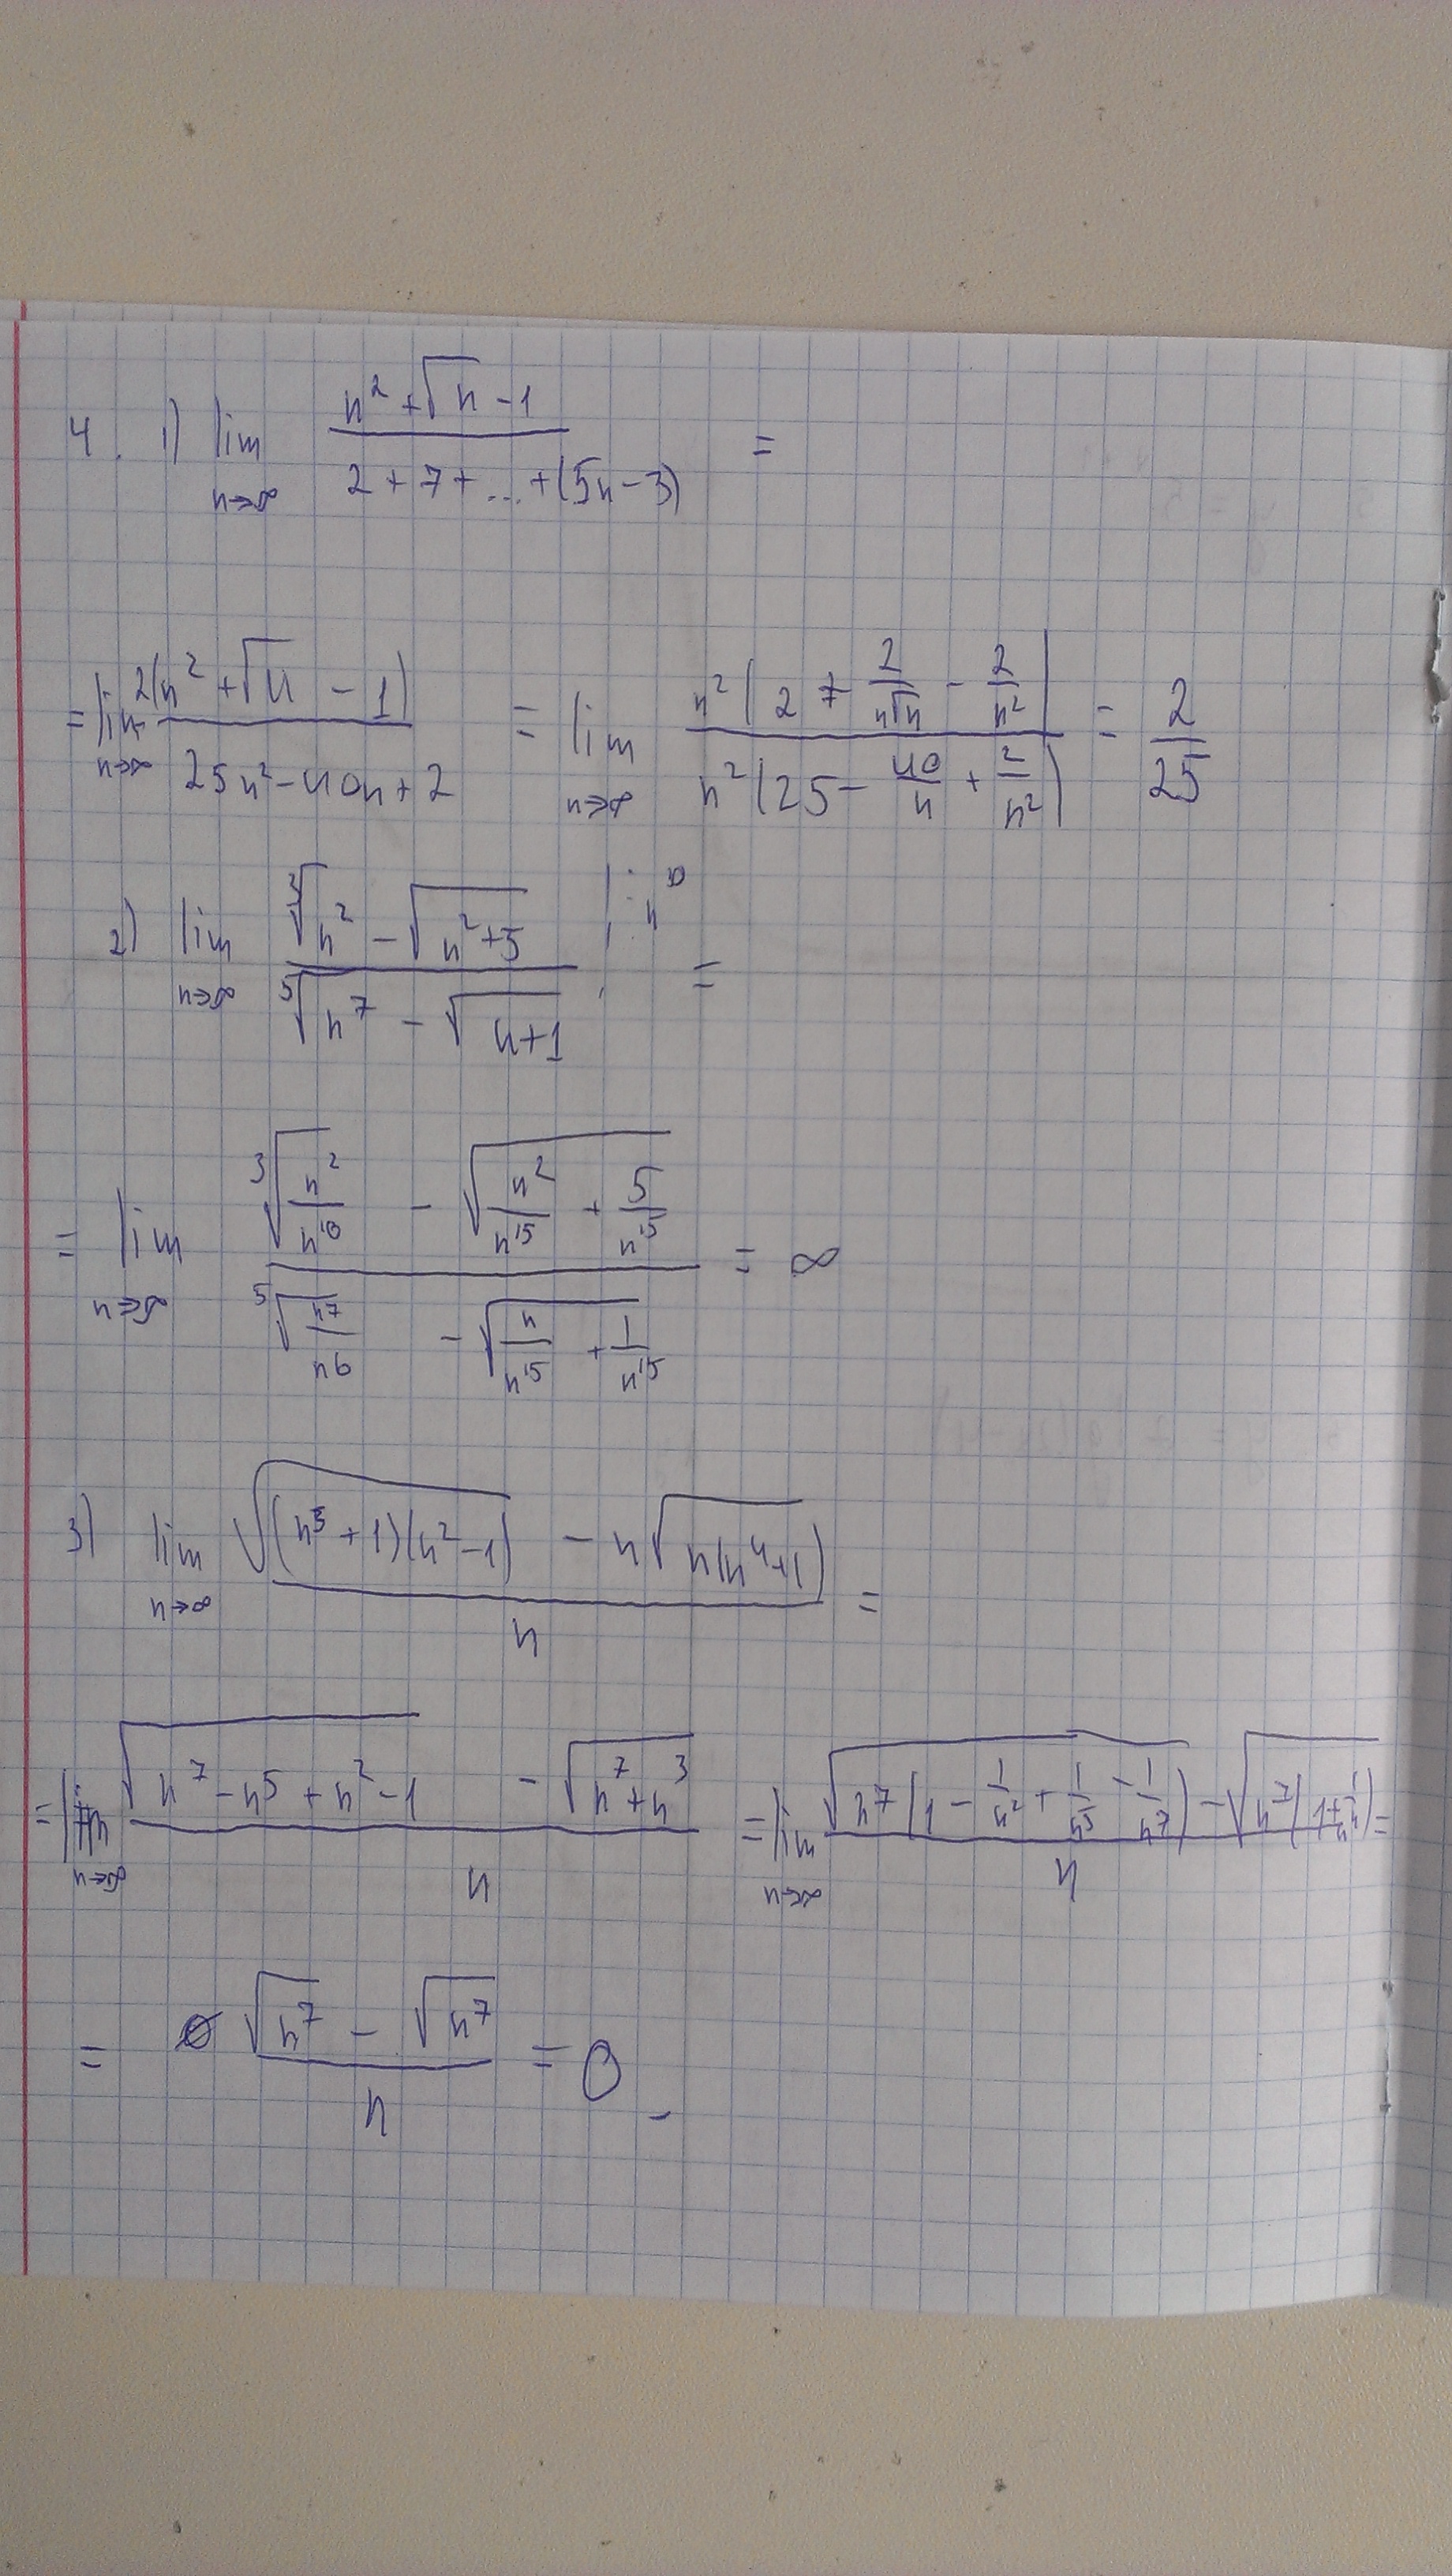 4. 1) lim n→∞ (n² + √n - 1) / (2 + 7 + ... + (5n - 3)) =
= lim n→∞ 2(n² + √n - 1) / (25n² - 40n + 2) = lim n→∞ n²(2 + 2/(n√n) - 2/n²) / n²(25 - 40/n + 2/n²) = 2/25
2) lim n→∞ (∛n² - √(n² + 5)) / (⁵√n⁷ - √(n + 1)) =
= lim n→∞ (∛(n²/n¹⁰) - √(n²/n¹⁵ + 5/n¹⁵)) / (⁵√(n⁷/n6) - √(n/n¹⁵ + 1/n¹⁵)) = ∞
3) lim n→∞ (√((n⁵ + 1)(n² - 1)) - n√(n(n⁴ + 1))) / n =
= lim n→∞ (√(n⁷ - n⁵ + n² - 1) - √(n⁷ + n³)) / n = lim n→∞ (√(n⁷(1 - 1/n² + 1/n⁵ - 1/n⁷)) - √(n⁷(1 + 1/n)) / n =
= (√n⁷ - √n⁷) / n = 0